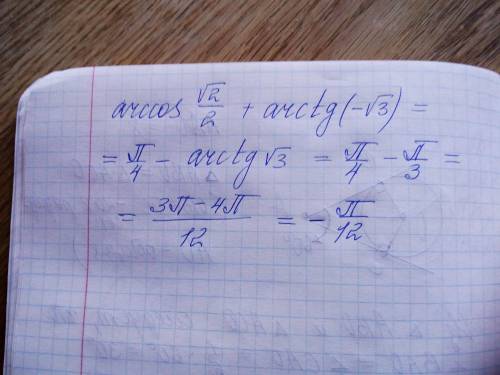 arccos √2/2 + arctg(-√3) =
= π/4 - arctg√3 = π/4 - π/3 =
= 3π-4π/12 = -π/12